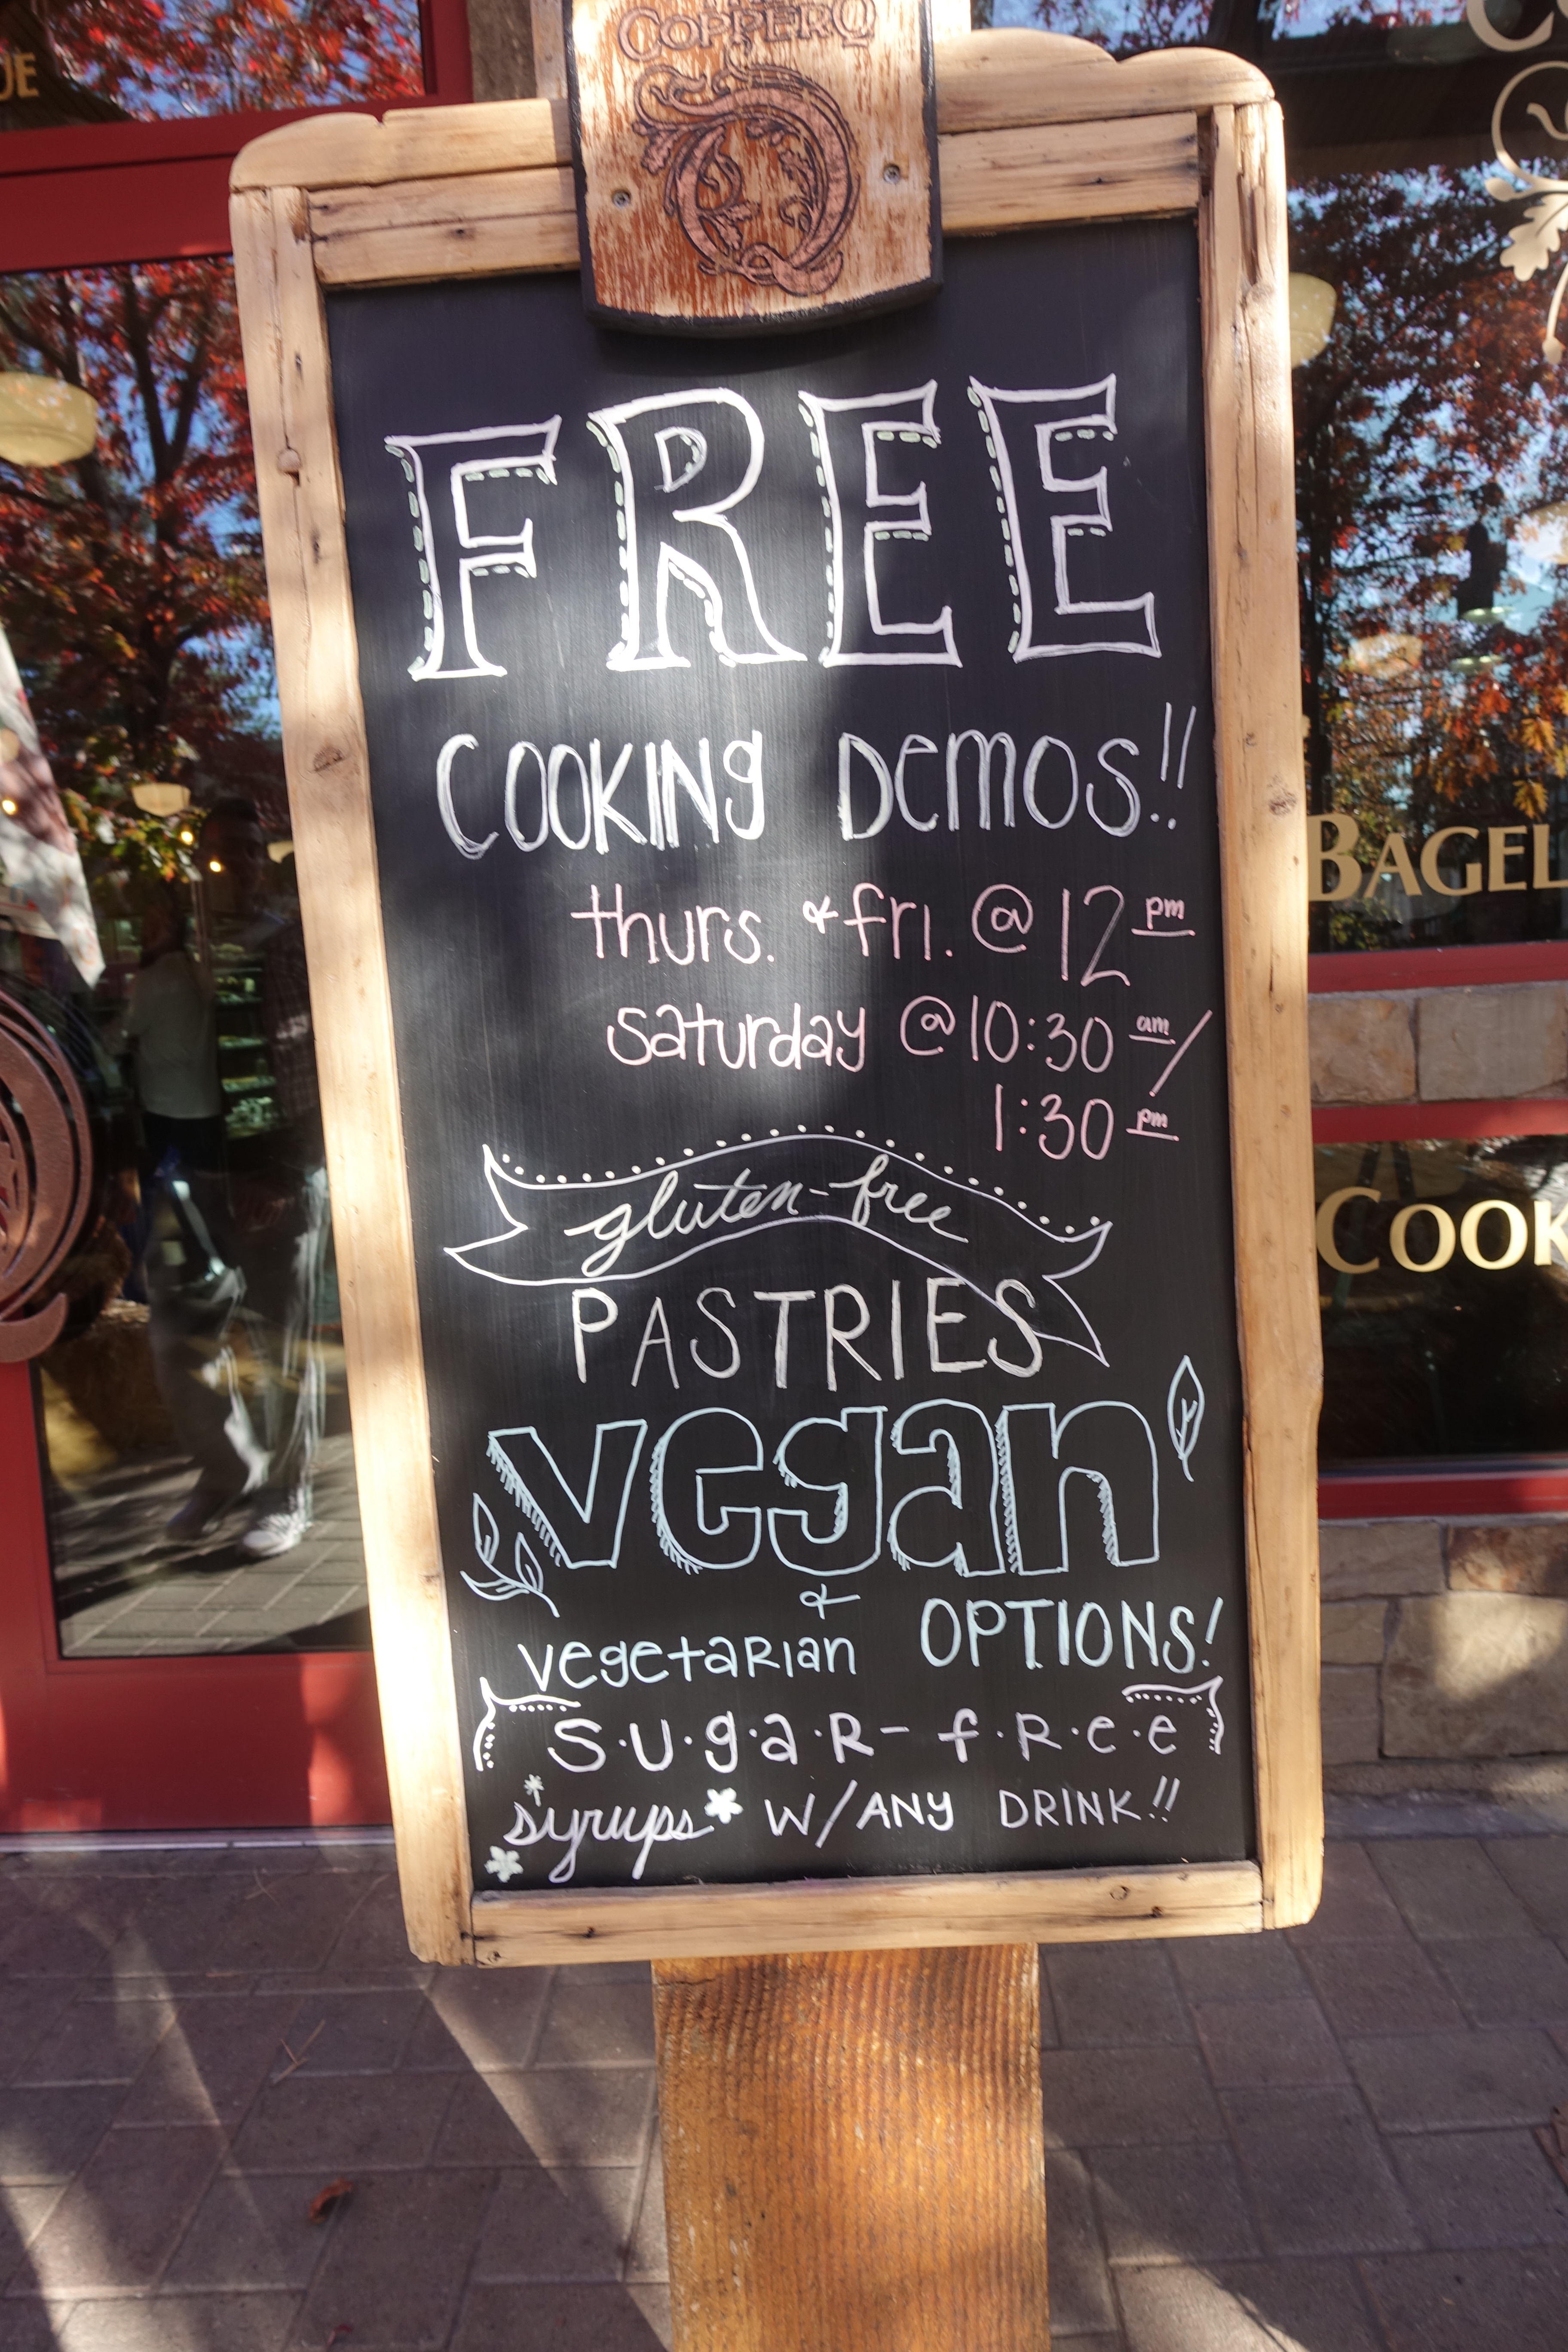 COPPER Q
FREE
COOKING DEMOS!!
thurs. & fri. @ 12 pm
saturday @ 10:30 am/
1:30 pm
gluten-free
PASTRIES
vegan
&
vegetarian OPTIONS!
S·U·g·a·R- f·R·e·e
syrups W/ANY DRINK!!
BAGEL
COOK